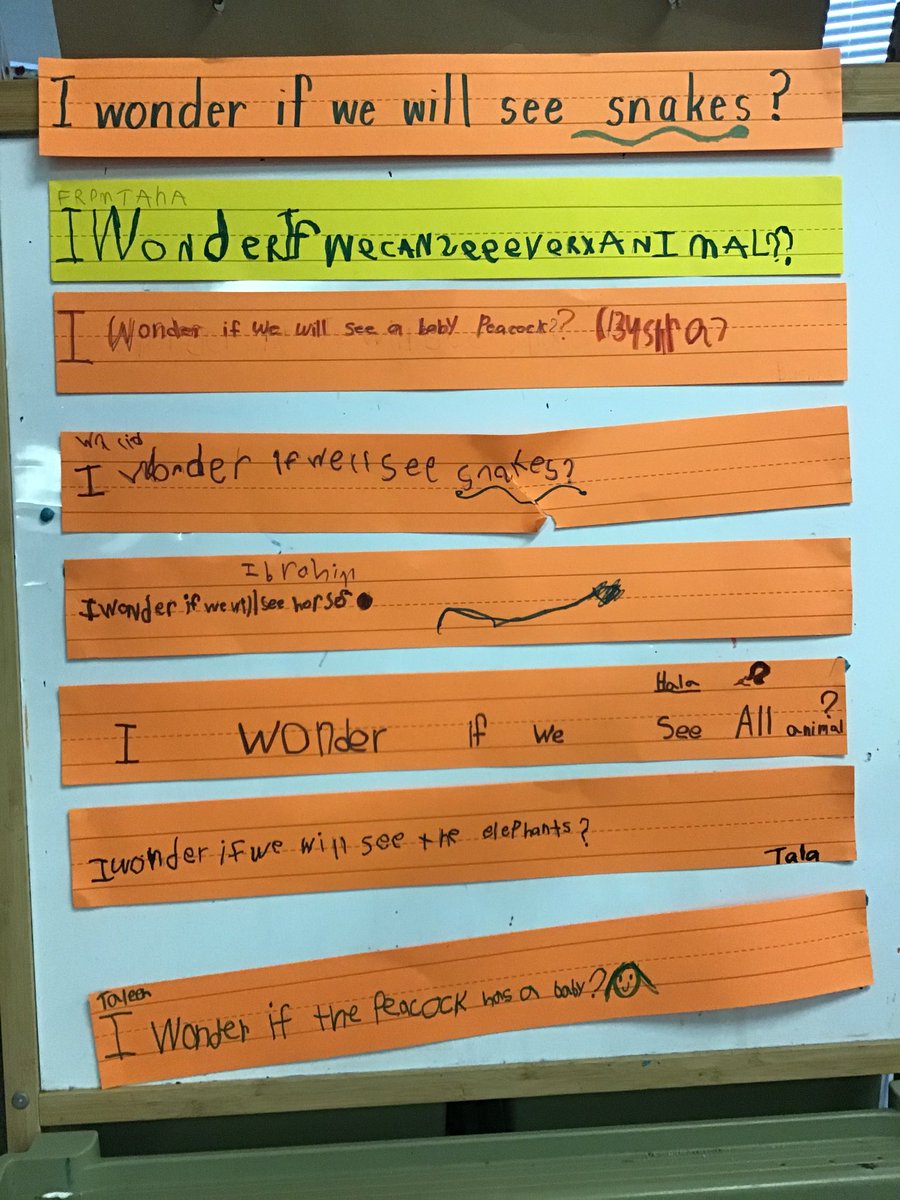 I wonder if we will see snakes?
FROM TAhA
I WonderIf WeCAN2eeeVERXANIMAL??
I Wonder if we will see a baby Peacock??
Walid
I Wonder if well see snakes?
Ibrohim
I wonder if we will see horses
Hala
I wonder if we See All animal?
I wonder if we will see the elephants?
Tala
Taleen
I Wonder if the Peacock has a baby?